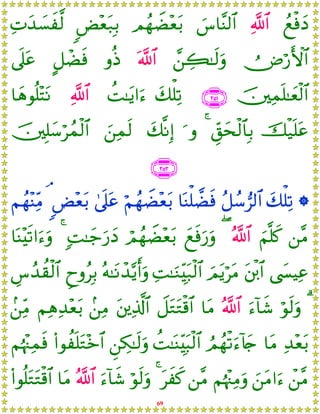 دَفْعُ ٱللَّهِ ٱلنَّاسَ بَعْضَهُم بِبَعْضٍ لَّفَسَدَتِ
ٱلْأَرْضُ وَلَٰكِنَّ ٱللَّهَ ذُو فَضْلٍ عَلَى
ٱلْعَٰلَمِينَ ٢٥١ تِلْكَ ءَايَٰتُ ٱللَّهِ نَتْلُوهَا
عَلَيْكَ بِٱلْحَقِّ ۚ وَإِنَّكَ لَمِنَ ٱلْمُرْسَلِينَ
٢٥٢
۞ تِلْكَ ٱلرُّسُلُ فَضَّلْنَا بَعْضَهُمْ عَلَىٰ بَعْضٍ ۘ مِّنْهُم
مَّن كَلَّمَ ٱللَّهُ ۖ وَرَفَعَ بَعْضَهُمْ دَرَجَٰتٍ ۚ وَءَاتَيْنَا
عِيسَى ٱبْنَ مَرْيَمَ ٱلْبَيِّنَٰتِ وَأَيَّدْنَٰهُ بِرُوحِ ٱلْقُدُسِ
ۗ وَلَوْ شَآءَ ٱللَّهُ مَا ٱقْتَتَلَ ٱلَّذِينَ مِنۢ بَعْدِهِم مِّنۢ
بَعْدِ مَا جَآءَتْهُمُ ٱلْبَيِّنَٰتُ وَلَٰكِنِ ٱخْتَلَفُوا۟ فَمِنْهُم
مَّنْ ءَامَنَ وَمِنْهُم مَّن كَفَرَ ۚ وَلَوْ شَآءَ ٱللَّهُ مَا ٱقْتَتَلُوا۟
69